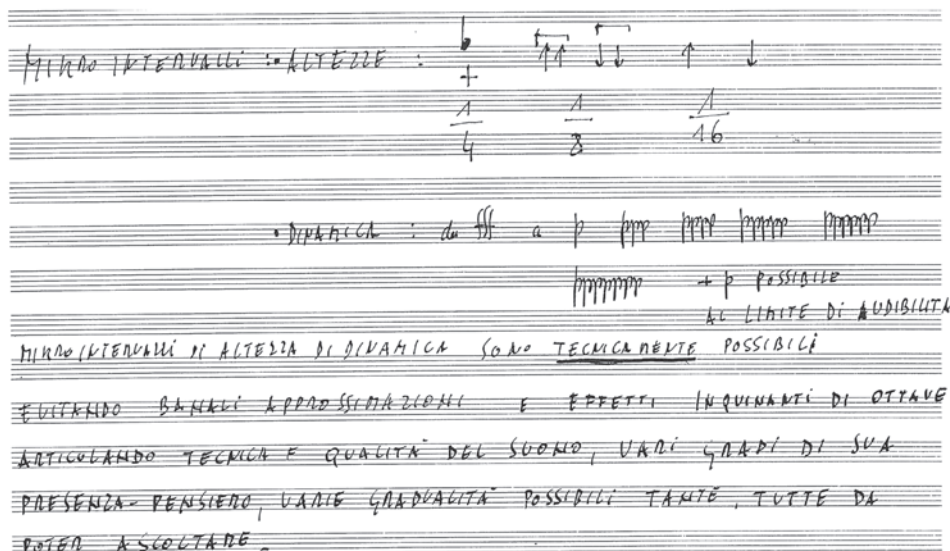 MIKRO INTERVALLI : • ALTEZZE :
+
1/4 1/8 1/16
• DINAMICA : da fff a p ppp
+ p POSSIBILE
AL LIMITE DI AUDIBILITA
MIKROINTERVALLI DI ALTEZZA DI DINAMICA SONO TECNICAMENTE POSSIBILI
EVITANDO BANALI APPROSSIMAZIONI E EFFETTI INQUINANTI DI OTTAVE
ARTICOLANDO TECNICA E QUALITÀ DEL SUONO, VARI GRADI DI SUA
PRESENZA-PENSIERO, VARIE GRADUALITÀ POSSIBILI TANTE, TUTTE DA
POTER ASCOLTARE.